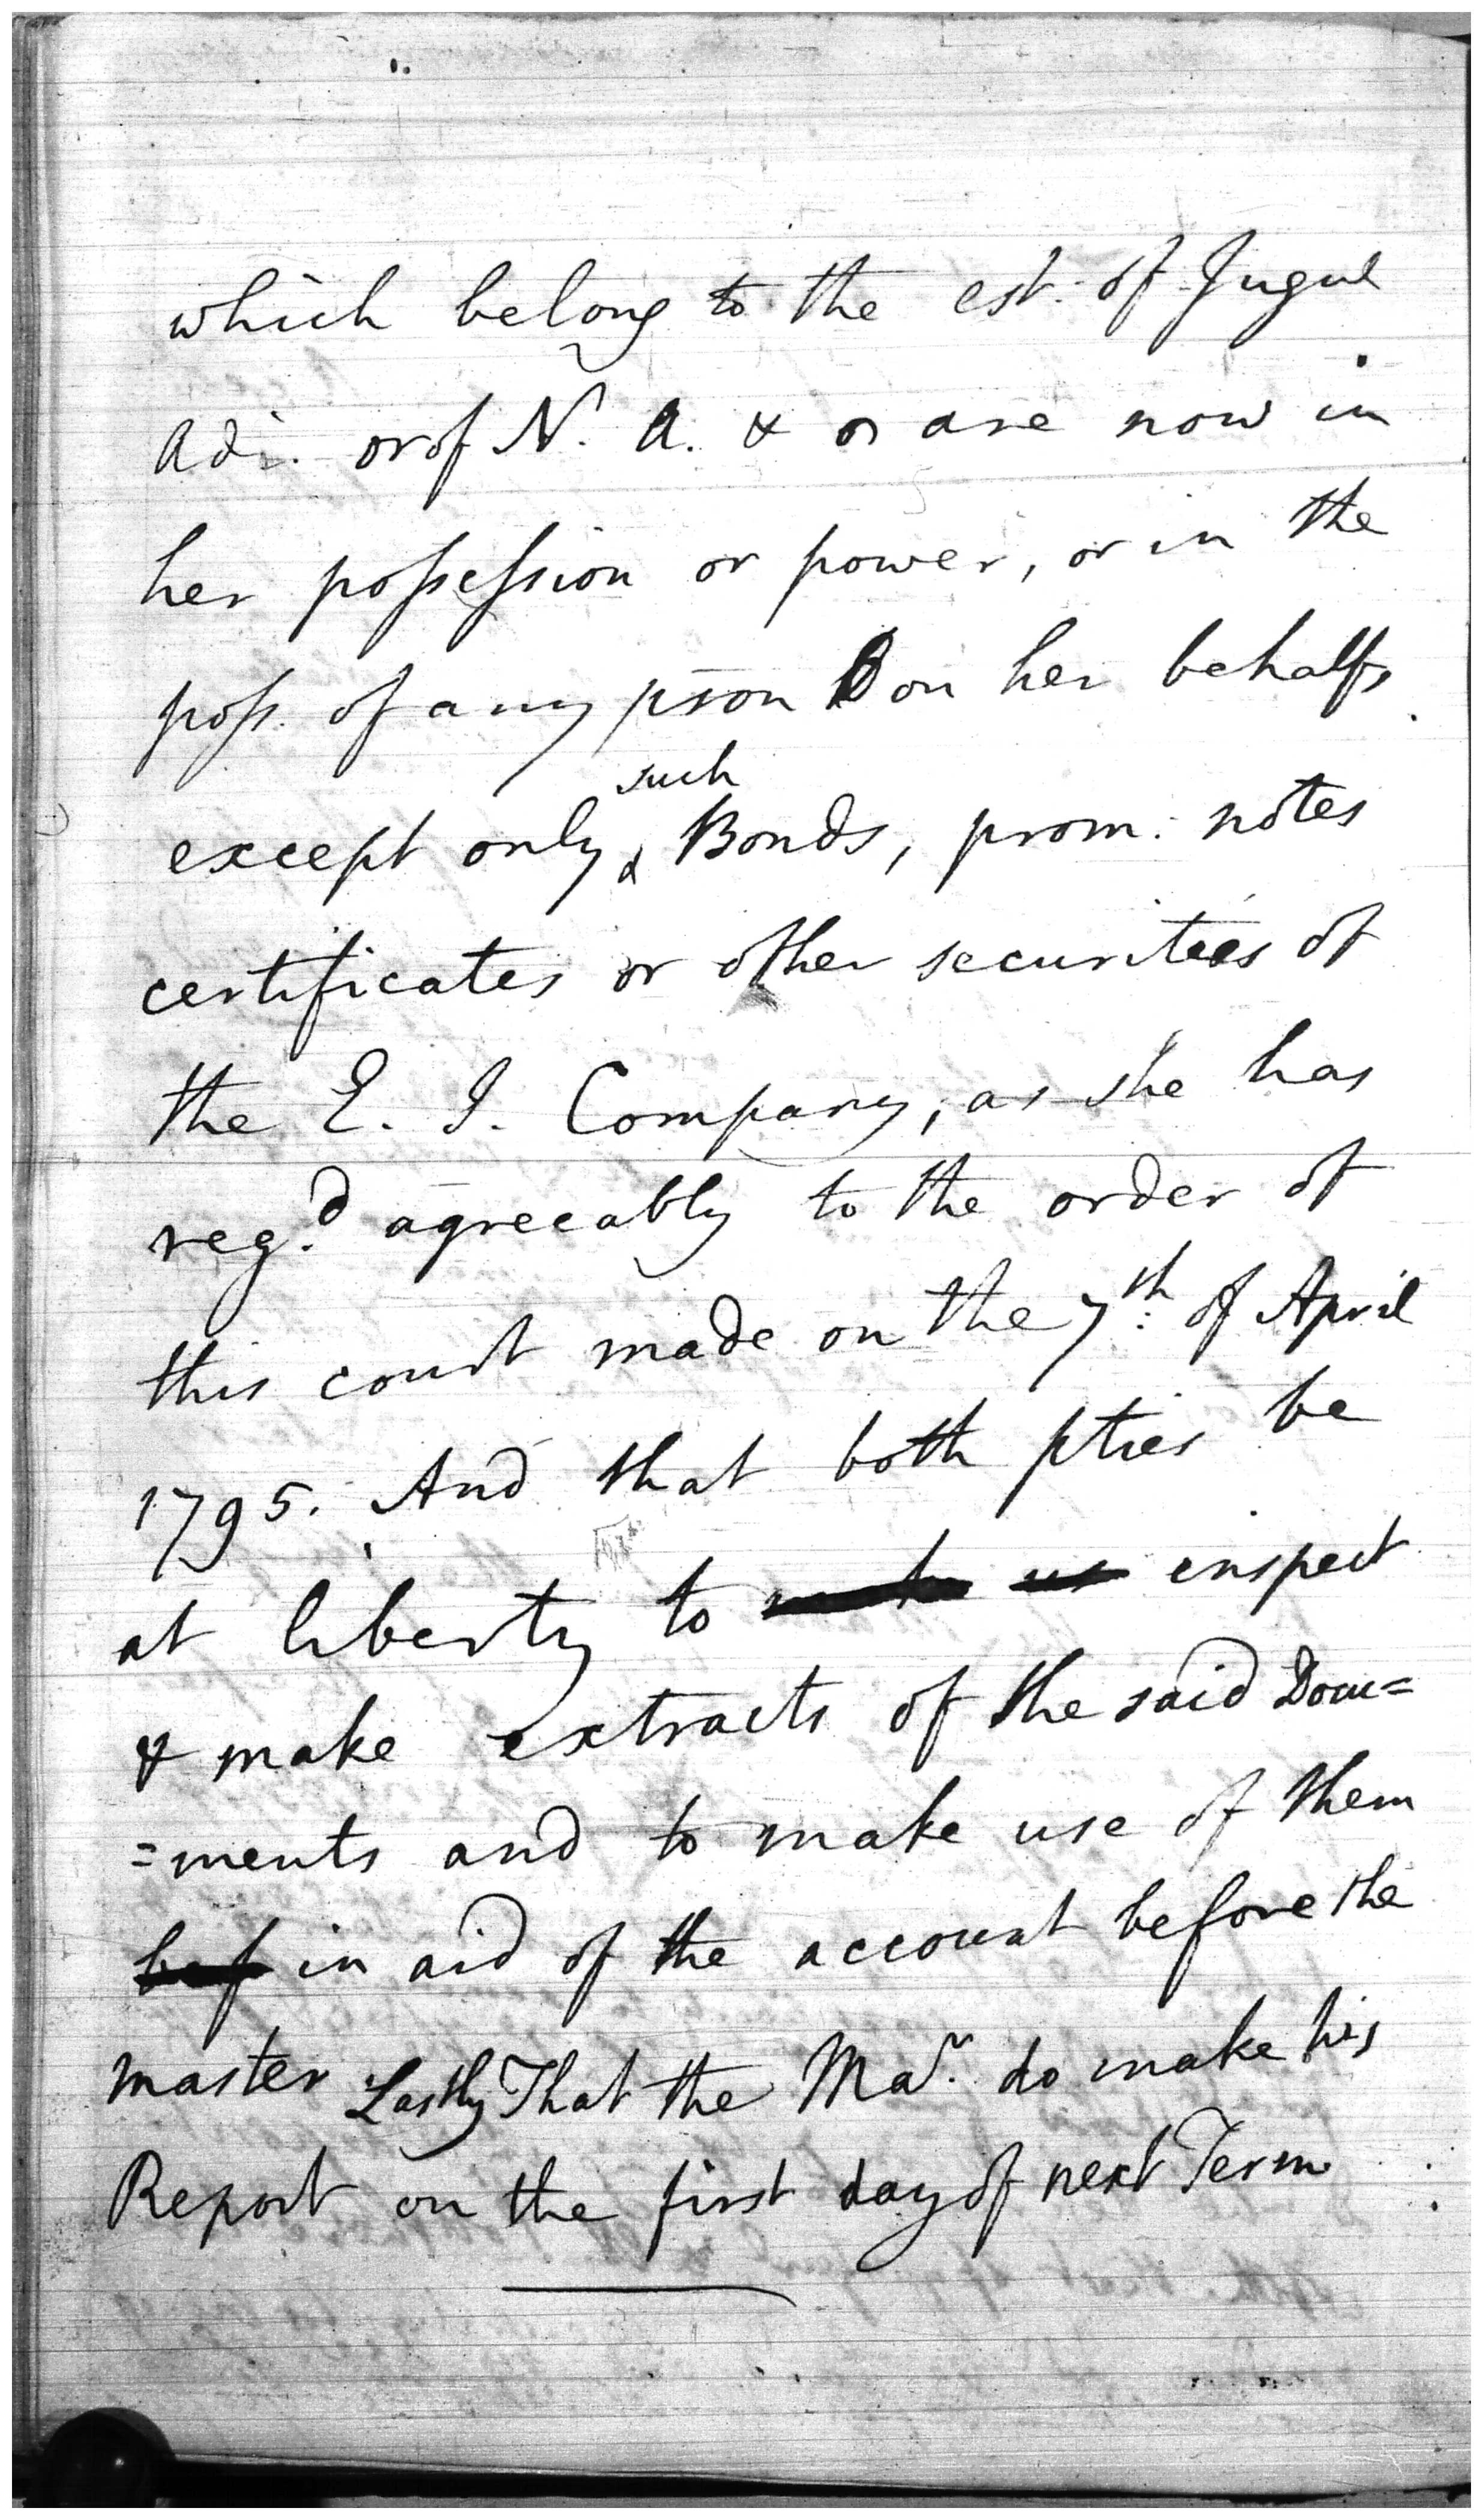 which belong to the est: of Jugul
Adi. or of N. A. & or are now in
her possession or power, or in the
poss. of any pson on her behalf,
such
except only Bonds, prom: notes
certificates or other securitees of
the E. I. Company, as she has
reg.d agreeably to the order of
this court made on the 7th: of April
1795. And that both pties be
at liberty to inspect
& make extracts of the said Docu=
=ments and to make use of them
bef in aid of the account before the
master Lastly That the Mar. do make his
Report on the first day of next Term